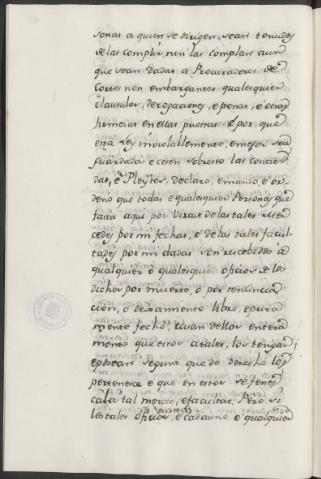 sonas a quien se dirigen, sean tenudos
de las complir, nin las complan aun
que sean dadas a Procuradores de
Cortes non embargantes qualesquier
clausulas, derogaciones, e penas, e otras
firmezas en ellas puestas. E por que
esta Ley inviolablemente, e mejor sea
guardada e cesen sobre esto las contien
das, e Pleytos, declaro, e mando e or
deno que todas e qualesquier Personas que
fasta aqui por virtud de las tales Mer
cedes por mi fechas, e de las tales facul
tades por mi dadas son recebidos a
qualquier o qualesquier oficios de los
dichos por muerto, o por renuncia
cion, o dexamiento libre, e pura
mente fecho, e usan dellos entera
mente que estos atales, los tengan
e posean segund que de derecho les
pertenesce e que en estos se fenes
ca la tal merced, e facultad. Pero si
los tales oficios, e cada uno e qualquier